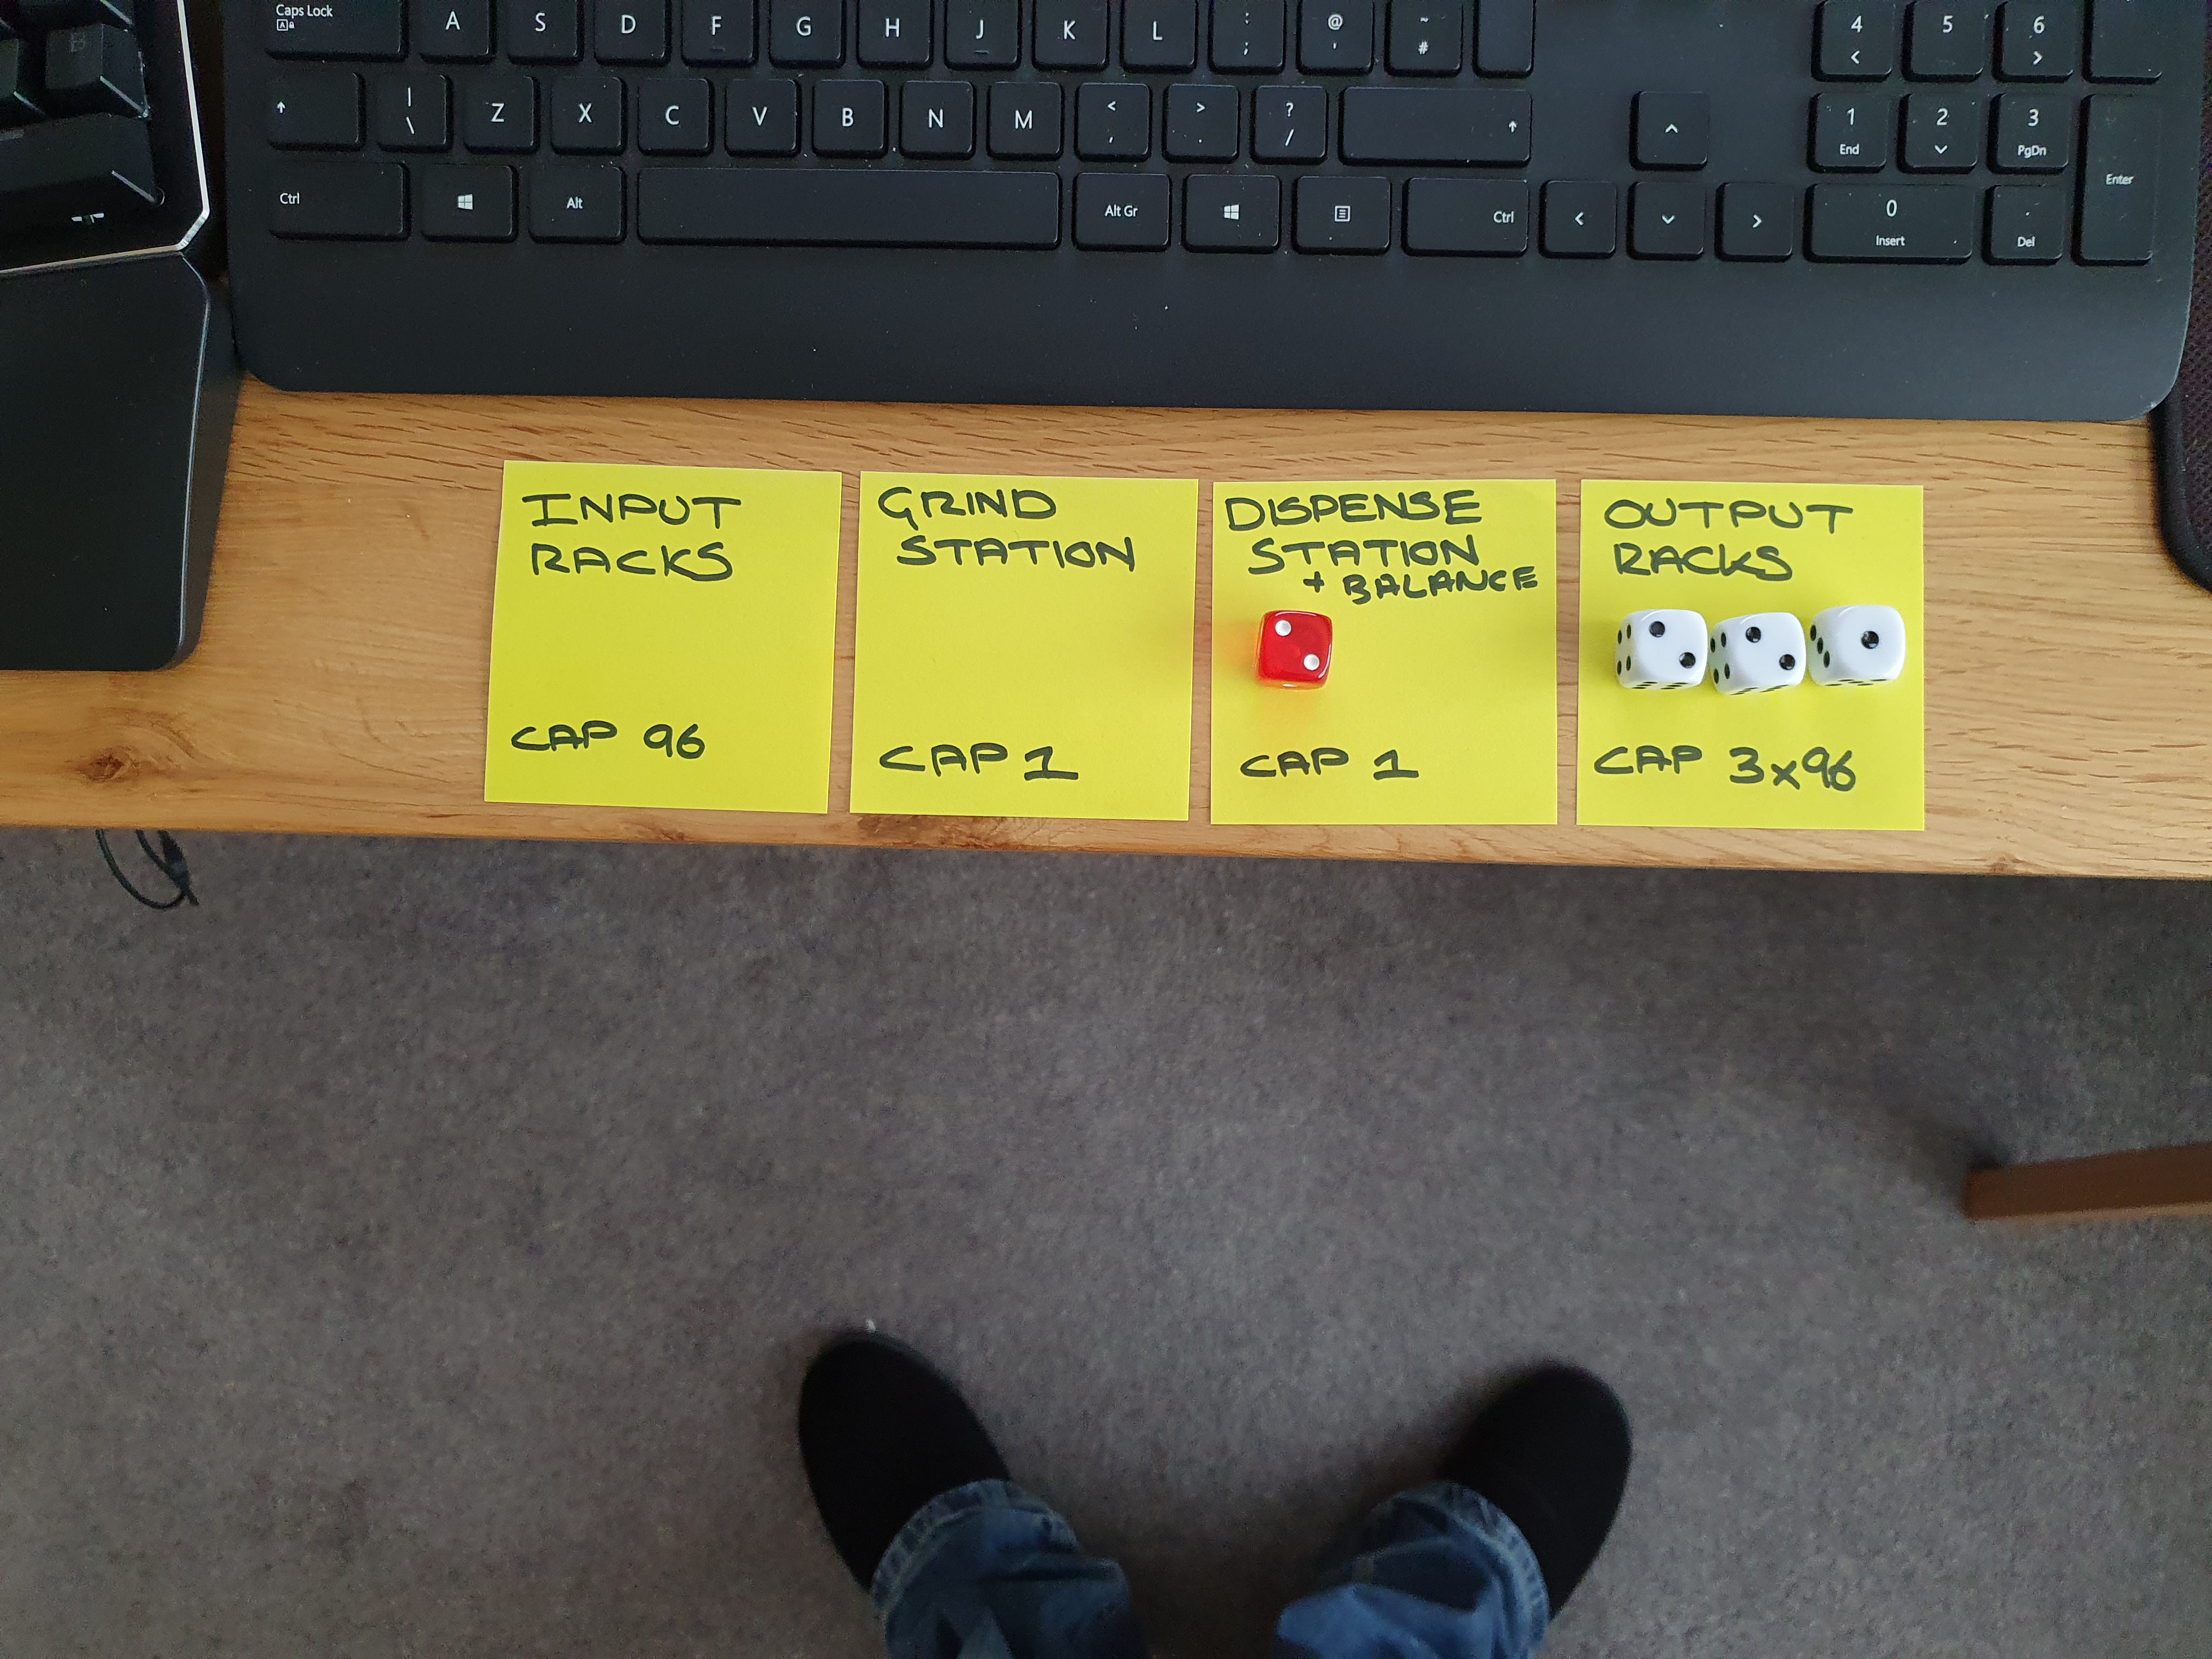 Caps Lock
A
S
D
F
G
H
J
K
L
:
;
@
'
~
#
4
<
5
6
>
|
\
Z
X
C
V
B
N
M
<
,
>
.
?
/
1
End
2
3
PgDn
Enter
Ctrl
Alt
Alt Gr
Ctrl
0
Insert
.
Del
INPUT
RACKS
CAP 96
GRIND
STATION
CAP 1
DISPENSE
STATION
+ BALANCE
CAP 1
OUTPUT
RACKS
CAP 3x96